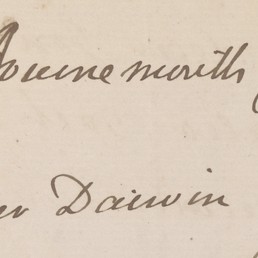 Bournemouth
Darwin